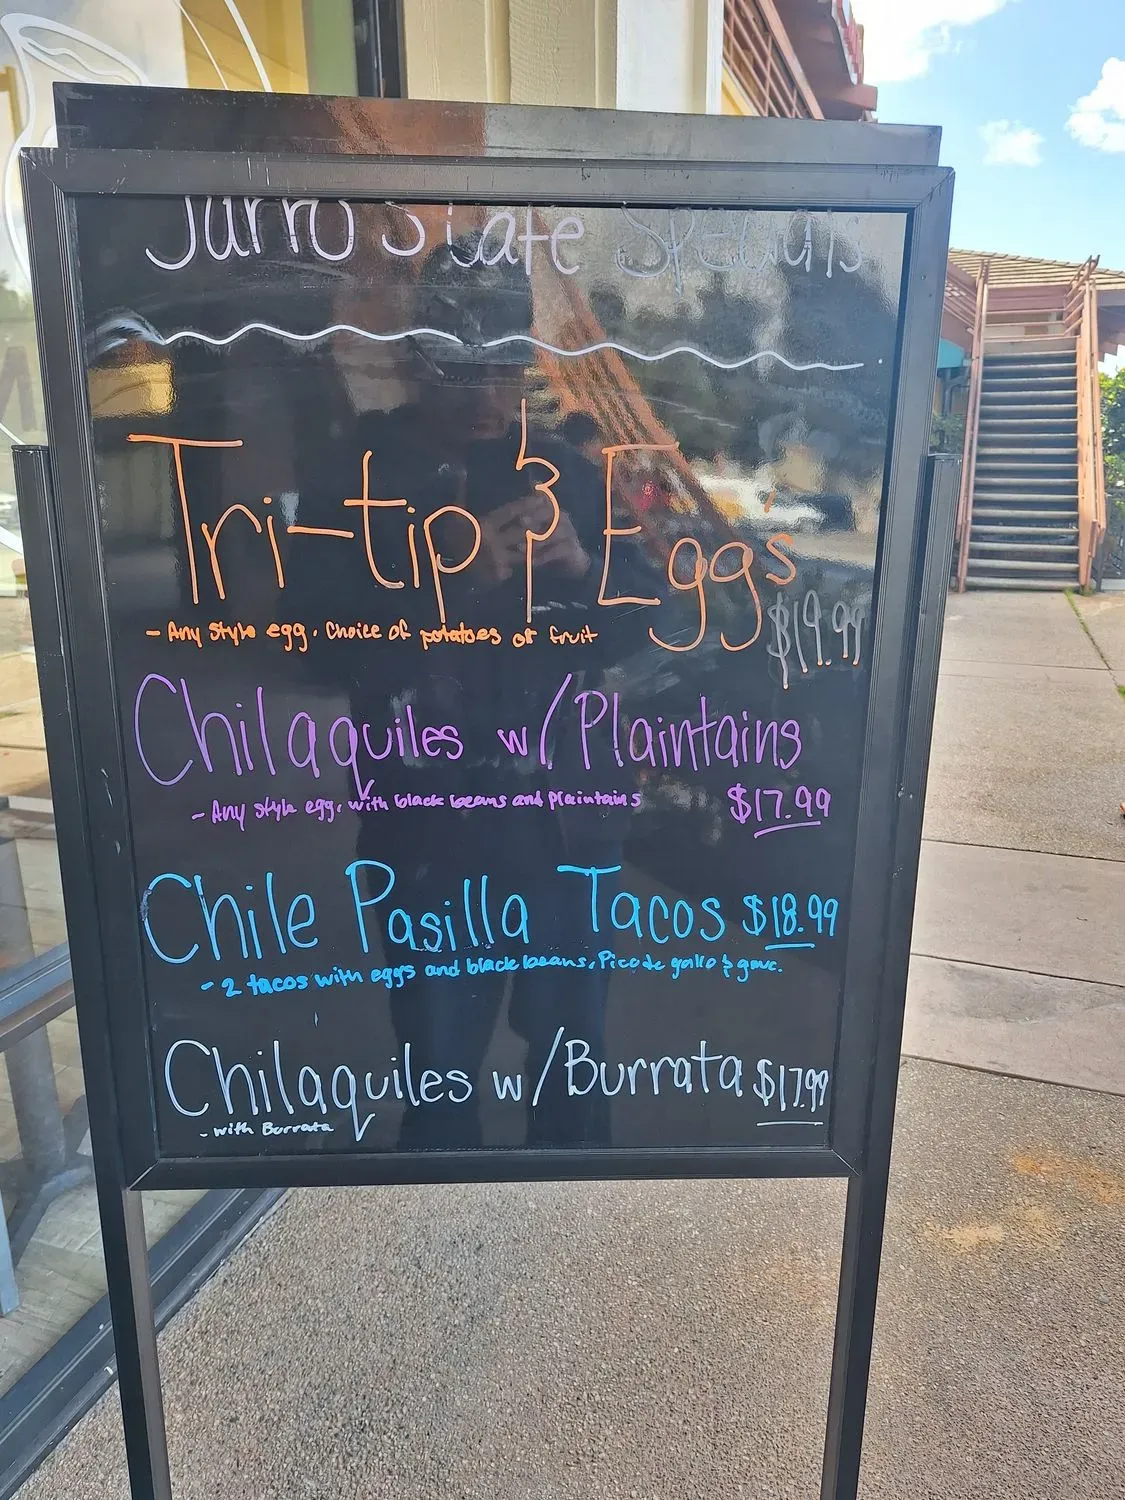 Jarro State Specials
Tri-tip & Egg's
$19.99
- Any style egg. Choice of potatoes or fruit
Chilaquiles w/Plaintains
- Any style egg, with black beans and plaintains
$17.99
Chile Pasilla Tacos $18.99
- 2 tacos with eggs and black beans, Pico de gallo & guac.
Chilaquiles w/Burrata $17.99
- with Burrata